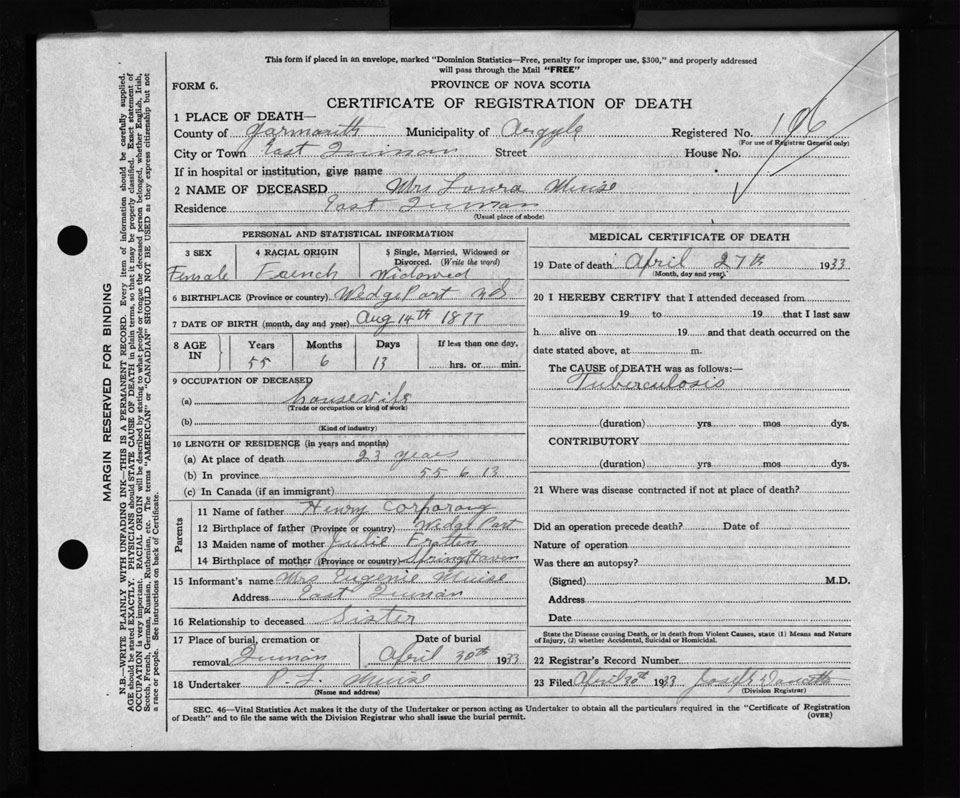 This form if placed in an envelope, marked "Dominion Statistics—Free, penalty for improper use, $300," and properly addressed
will pass through the Mail "FREE"
FORM 6.
PROVINCE OF NOVA SCOTIA
CERTIFICATE OF REGISTRATION OF DEATH
1 PLACE OF DEATH—
County of Yarmouth Municipality of Argyle Registered No. 196
(For use of Registrar General only)
City or Town East Quinan Street House No.
If in hospital or institution, give name
2 NAME OF DECEASED Mrs Loura Muise
Residence East Quinan
(Usual place of abode)
PERSONAL AND STATISTICAL INFORMATION
3 SEX 4 RACIAL ORIGIN 5 Single, Married, Widowed or
Divorced. (Write the word)
Female French Widowed
6 BIRTHPLACE (Province or country) Wedge Port N.S
7 DATE OF BIRTH (month, day and year) Aug 14th 1877
8 AGE IN Years Months Days If less than one day,
55 6 13 hrs. or min.
9 OCCUPATION OF DECEASED
(a) housewife
(Trade or occupation or kind of work)
(b)
(Kind of industry)
10 LENGTH OF RESIDENCE (in years and months)
(a) At place of death 23 years
(b) In province 55 6 13
(c) In Canada (if an immigrant)
Parents
11 Name of father Henry
12 Birthplace of father (Province or country) Wedge Port
13 Maiden name of mother Julie
14 Birthplace of mother (Province or country) Spring Haven
15 Informant's name Mrs Eugenie Muise
Address East Quinan
16 Relationship to deceased Sister
17 Place of burial, cremation or Date of burial
removal Quinan April 30th 1933
18 Undertaker P. L. Muise
(Name and address)
MEDICAL CERTIFICATE OF DEATH
19 Date of death April 27th 1933
(Month, day and year)
20 I HEREBY CERTIFY that I attended deceased from
19 to 19 that I last saw
h alive on 19 and that death occurred on the
date stated above, at m.
The CAUSE of DEATH was as follows:—
Tuberculosis
(duration) yrs mos dys.
CONTRIBUTORY
(duration) yrs mos dys.
21 Where was disease contracted if not at place of death?
Did an operation precede death? Date of
Nature of operation
Was there an autopsy?
(Signed) M.D.
Address
Date
State the Disease causing Death, or in death from Violent Causes, state (1) Means and Nature
of Injury, (2) whether Accidental, Suicidal or Homicidal.
22 Registrar's Record Number
23 Filed April 30th 1933 Joseph
(Division Registrar)
SEC. 46—Vital Statistics Act makes it the duty of the Undertaker or person acting as Undertaker to obtain all the particulars required in the "Certificate of Registration
of Death" and to file the same with the Division Registrar who shall issue the burial permit.
(OVER)
MARGIN RESERVED FOR BINDING
N.B.—WRITE PLAINLY WITH UNFADING INK—THIS IS A PERMANENT RECORD. Every item of information should be carefully supplied.
AGE should be stated EXACTLY. PHYSICIANS should STATE CAUSE OF DEATH in plain terms, so that it may be properly classified. Exact statement of
OCCUPATION is very important. RACIAL ORIGIN will be described by stating to what people or tongue the deceased person belonged, whether English, Irish,
Scotch, French, German, Russian, Ruthenian, etc. The terms "AMERICAN" or "CANADIAN" SHOULD NOT BE USED as they express citizenship but not
a race or people. See instructions on back of Certificate.